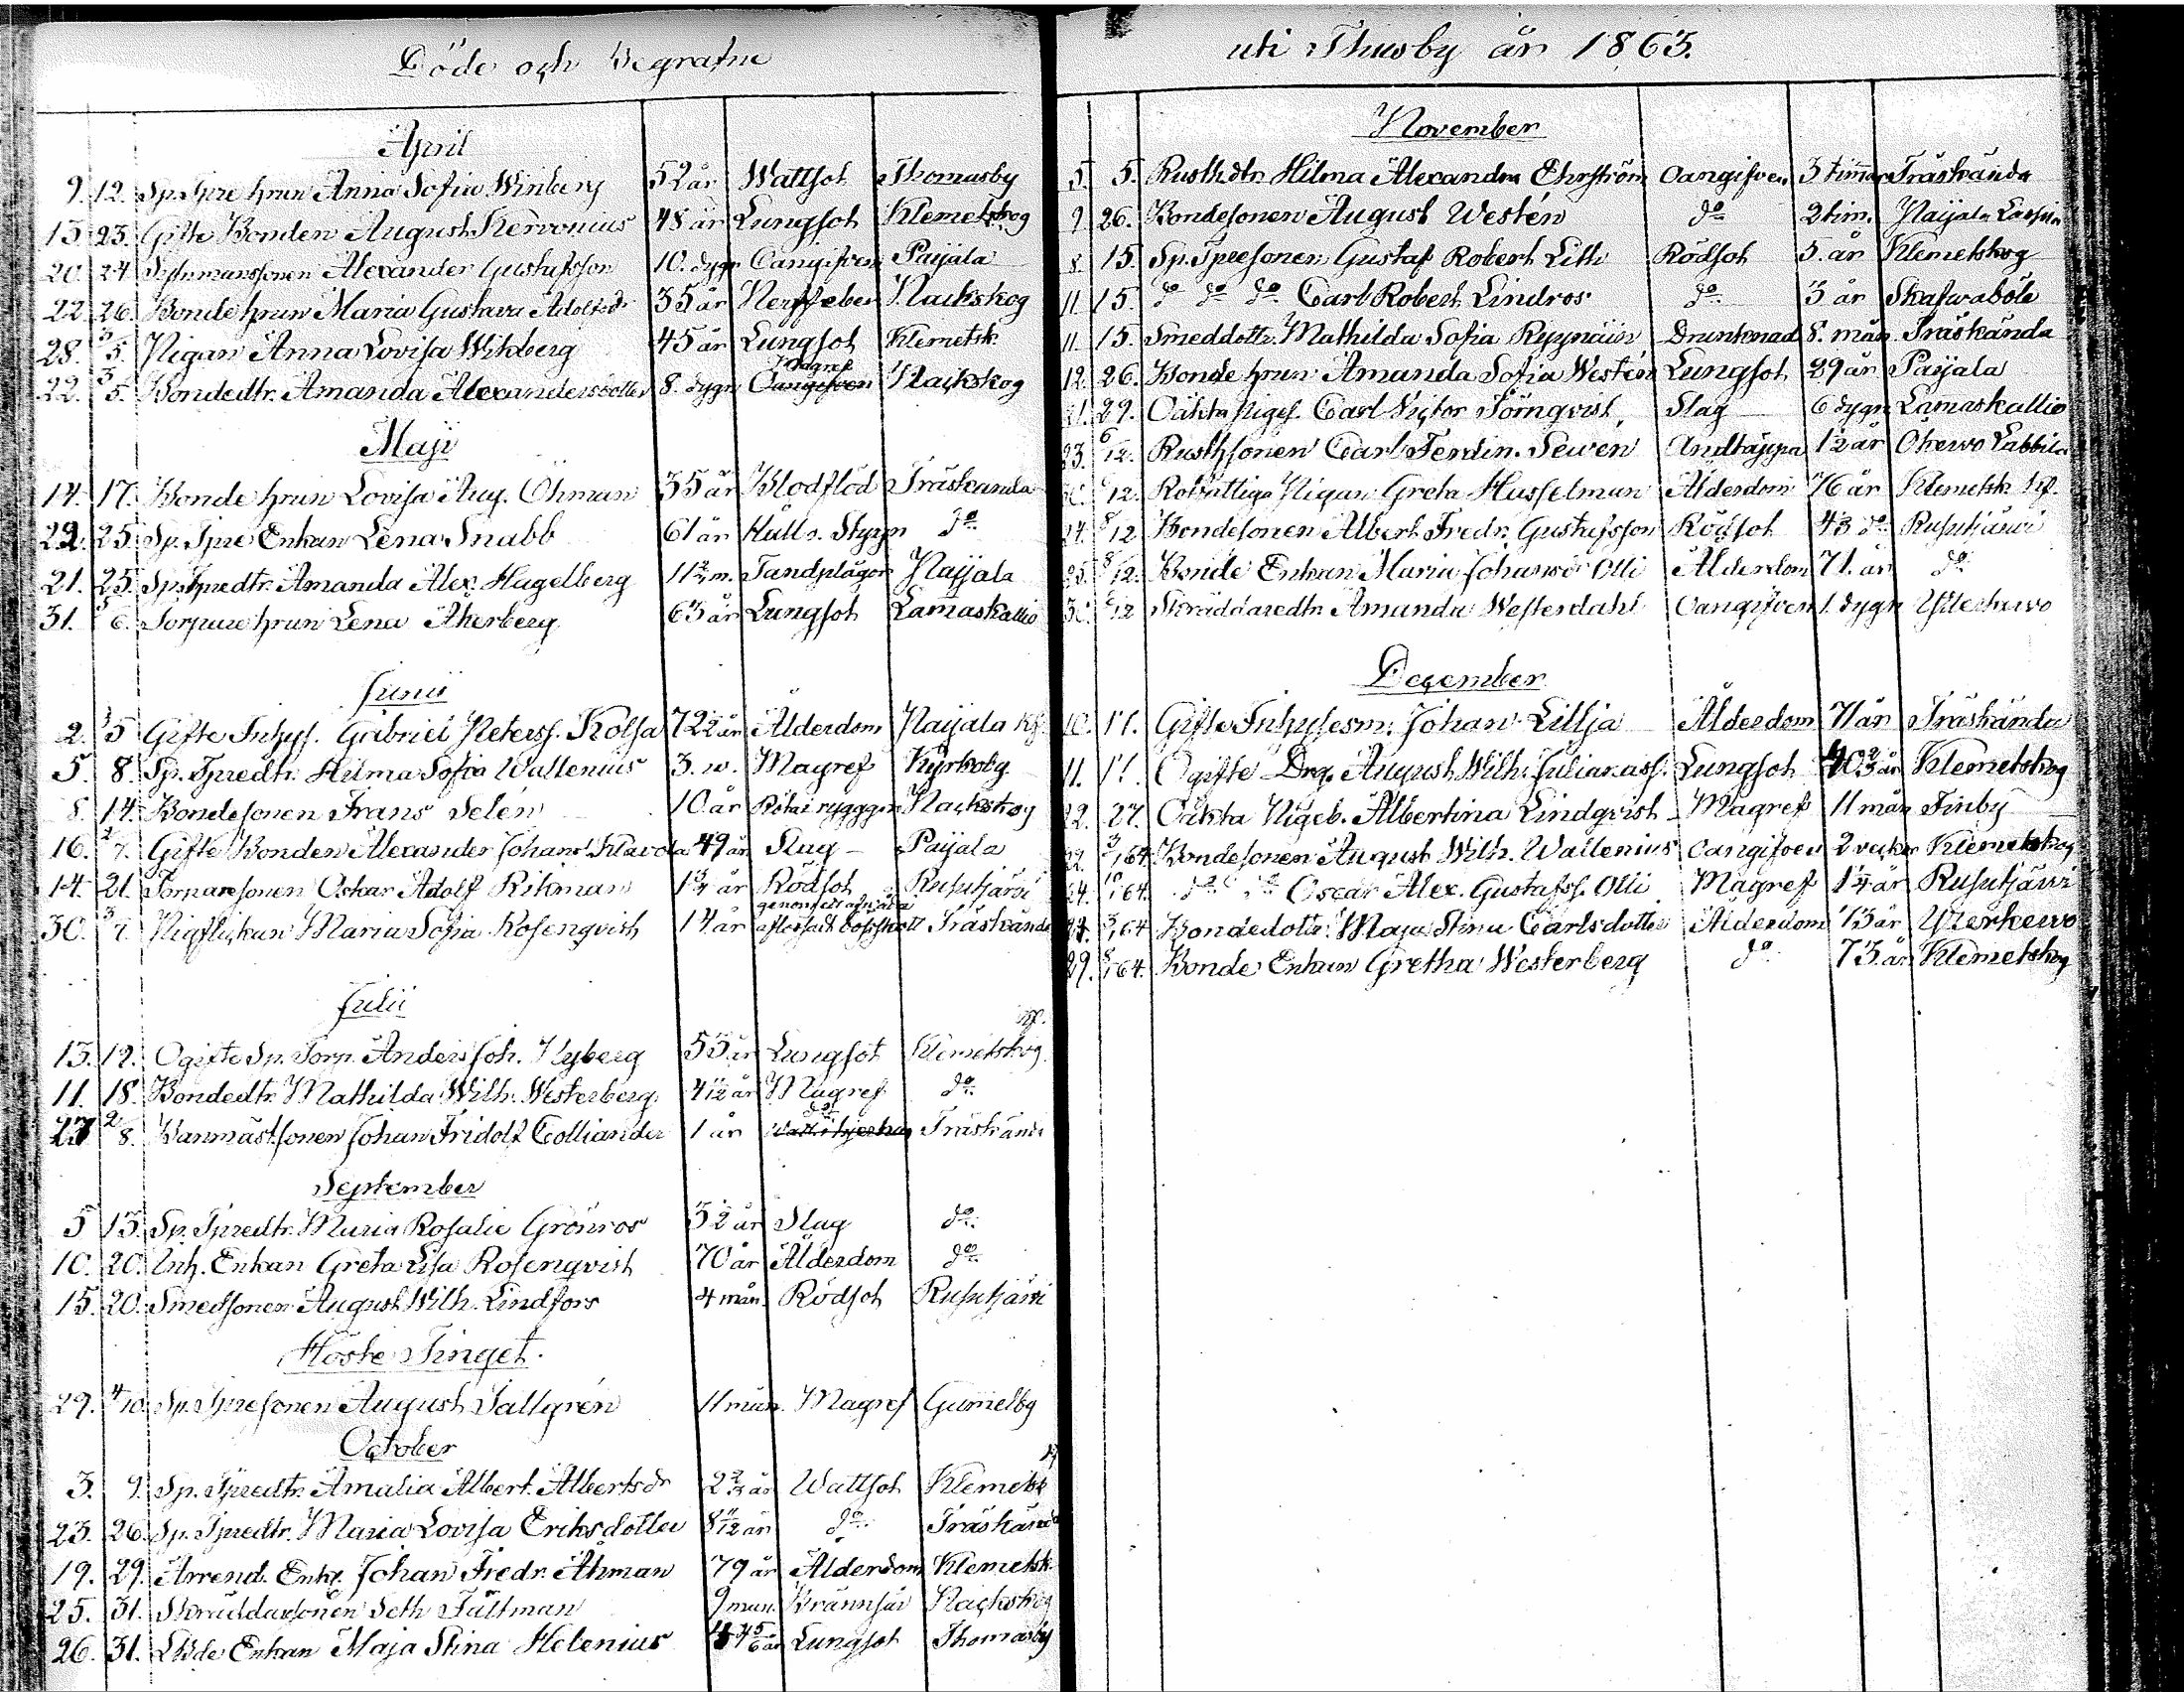 Döde och Begrafne
April
9. 12. Sp. Tpre hrun Anna Sofia Winberg 52 år Wattsot Thomasby
13. 23. Gifte Bonden August Kervonius 48 år Lungsot Klemetskog
20. 24 Alexander Gustafsson 10. dygn Oangifven Paijala
22. 26. Bonde hrun Maria Gustava Adolfsdr 35 år Nackskog
28. 3/5. Pigan Anna Lovisa Wikberg 45 år Lungsot Klemetsk.
22. 3/5. Bondedtr. Amanda Alexandersdotter 8. dygn Magref Nackskog
Maji
14. 17. Bonde hrun Lovisa Aug. Öhman 35 år Blodflöd Träskanda
22. 25. Sp. Tpre Enkan Lena Snabb 61 år Håll o. Stygn do
21. 25. Sp. Tpredtr. Amanda Alex. Hagelberg 11 2/4 m. Tandplågor Paijala
31. 5/6. Torpare hrun Lena Åkerberg 63 år Lungsot Lamaskallio
Junii
2. 5 Gifte Inhys. Gabriel Peterss. Kolsa 72 1/2 år Ålderdom Paijala
5. 8. Sp. Tpredtr. Hilma Sofia Wallenius 3. w. Magref Kyrkoby
8. 14. Bondesonen Frans Selén 10 år Röta i rygggen Nackskog
16. 2/7. Gifte Bonden Alexander Johans. Klavola 49 år Slag Paijala
14. 21. Torparesonen Oskar Adolf Rikman 1 3/4 år Rödsot Rusutjärvi
30. 3/7. Pigflickan Maria Sofia Rosenqvist 14 år Träskända
Julii
13. 19. Ogifte Sp. Torp. Anders Joh. Nyberg 53 år Lungsot Klemetskog
11. 18. Bondedtr. Mathilda Wilh. Westerberg 4 1/12 år Magref do
27 2/8. Johan Fridolf Colliander 1 år do Träskända
September
5 13. Sp. Tpredtr. Maria Rosalie Grönros 32 år Slag do
10. 20. Inh. Enkan Greta Lisa Rosenqvist 70 år Ålderdom do
15. 20. Smedsonen August Wilh. Lindfors 4 mån. Rödsot Rusutjärvi
Höste Tinget.
29. 4/10. Sp. Tpresonen August Sallgrén 11 mån. Magref Gumelby
October
3. 9. Sp. Tpredtr. Amalia Albert. Albertsdr 2 2/3 år Wattsot Klemetsk
23. 26. Sp. Tpredtr. Maria Lovisa Eriksdotter 8 11/12 år do Träskända
19. 29. Arrend. Enkl. Johan Fredr. Åhman 79 år Ålderdom Klemetsk.
25. 31. Skräddarsonen Seth Fältman 9 mån. Brännsår Nackskog
26. 31. Enkan Maja Stina Helenius Lungsot Thomasby
uti Thusby år 1863.
November
5. 5. Rusth.dtr. Hilma Alexandra Ehrström Oangifven 3 timmar Träskända
9. 26. Bondesonen August Westén do 2 tim. Paijala
8. 15. Sp. Tpresonen Gustaf Robert Lith Rödsot 5. år Klemetskog
11 15. do do do Carl Robert Lindros do 3 år Skafwaböle
11. 15. Smeddottr. Mathilda Sofia Ryynäin Drunknad 8. mån. Träskända
12. 26. Bonde hrun Amanda Sofia Westén Lungsot 29 år Paijala
21. 29. Oäkta Pigef. Carl Victor Törnqvist Slag 6 dygn Lamaskallio
23. 6/12. Rusth.sonen Carl Ferdin. Sewén Andtäppa 1/2 år Ohkervo Labbila
12. Rotfattiga Pigan Greta Husselman Ålderdom 76 år Klemetsk.
24. 8/12 Bondesonen Albert Fredr. Gustafsson Rödsot Rusutjärvi
25. 8/12. Bonde Enkan Maria Johansdr Olli Ålderdom 71. år do
30. 6/12 Skräddaredtr. Amanda Westerdahl Oangifven 1. dygn
December
10. 17. Gifte Inhysesm. Johan Lillja Ålderdom 71 år Träskända
11. 17. Ogifte Drg. August Wilh. Julianass. Lungsot Klemetskog
22. 27. Oäkta Pigeb. Albertina Lindqvist Magref 11 mån Finby
22. 3/1 64. Bondesonen August Wilh. Wallenius Oangifven 2 veckor Klemetskog
24. 10/1 64. do do Oscar Alex. Gustafss. Olli Magref 1 1/4 år Rusutjärvi
24. 3/1 64 Bondedottr. Maja Stina Carlsdotter Ålderdom 73 år Ylikerkewo
29. 8/1 64. Bonde Enkan Gretha Westerberg do 73. år Klemetskog